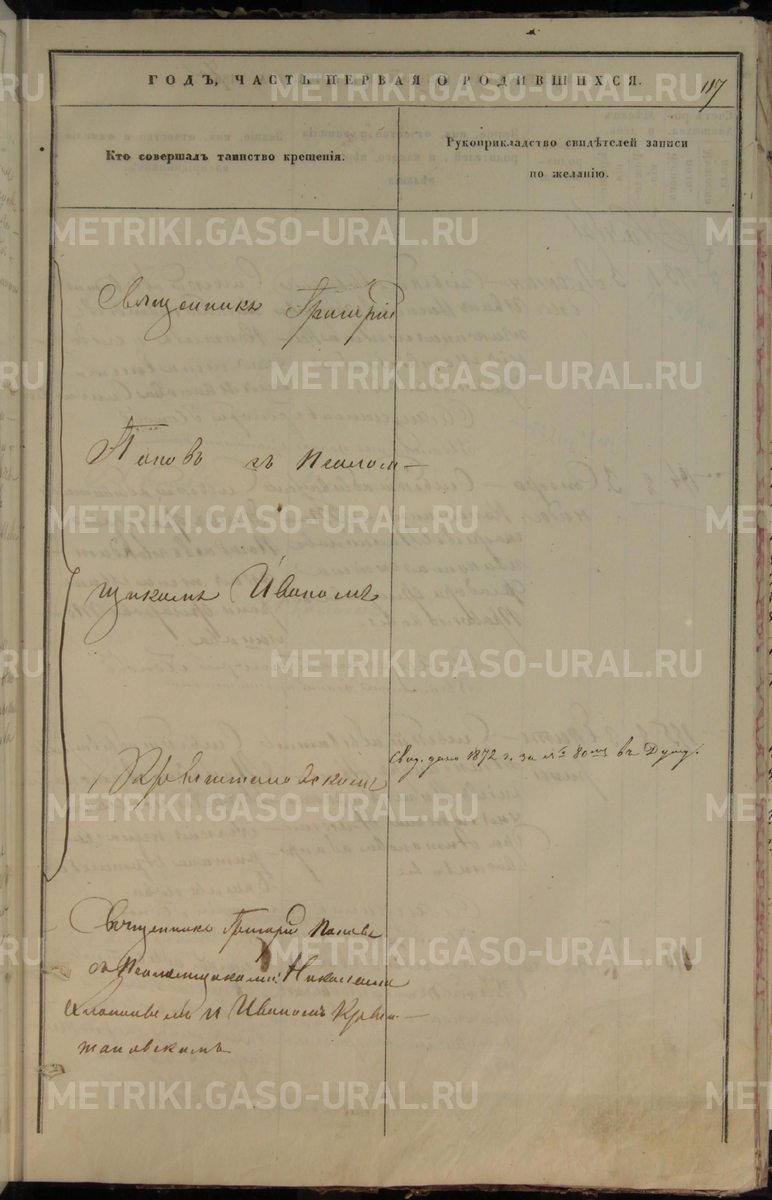 ГОДЪ, ЧАСТЬ ПЕРВАЯ О РОДИВШИХСЯ.
117
Кто совершалъ таинство крещенія.
Рукоприкладство свидѣтелей записи
по желанію.
Священникъ Григорій
Поповъ съ Псалом-
щикомъ Иваномъ
Свид. дано 1872 г. за № 80
Священникъ Григорій Поповъ
съ Псаломщиками: Николаемъ
и Иваномъ
METRIKI.GASO-URAL.RU